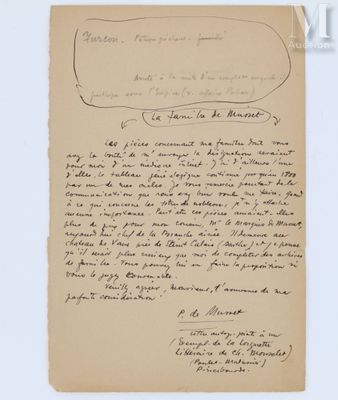 M
Auction
Furcon.
(La famille de Musset)
Les pièces concernant ma famille dont vous
avez la bonté de m'envoyer la désignation seraient
pour moi d'un médiocre intérêt. J'ai d'ailleurs l'une
d'elles, le tableau généalogique continué jusqu'en 1800
par un de mes oncles. Je vous remercie pourtant de la
communication que vous avez bien voulu me faire, quant
à ce qui concerne les titres de noblesse, je n'y attache
aucune importance. Peut-être ces pièces auraient-elles
plus de prix pour mon cousin, Mr le Marquis de Musset,
aujourd'hui chef de la Branche aînée. Il demeure au
château de Vaux près de Saint Calais (Sarthe) et je pense
qu'il serait plus curieux que moi de compléter des archives
de famille. Vous pouvez lui en faire la proposition si
vous le jugez convenable.
Veuillez agréer, Monsieur, l'assurance de ma
parfaite considération.
P. de Musset
lettre autog. jointe à un
Exempl. de la Lorgnette
Littéraire de Ch. Monselet
(Poulet-Malassis)